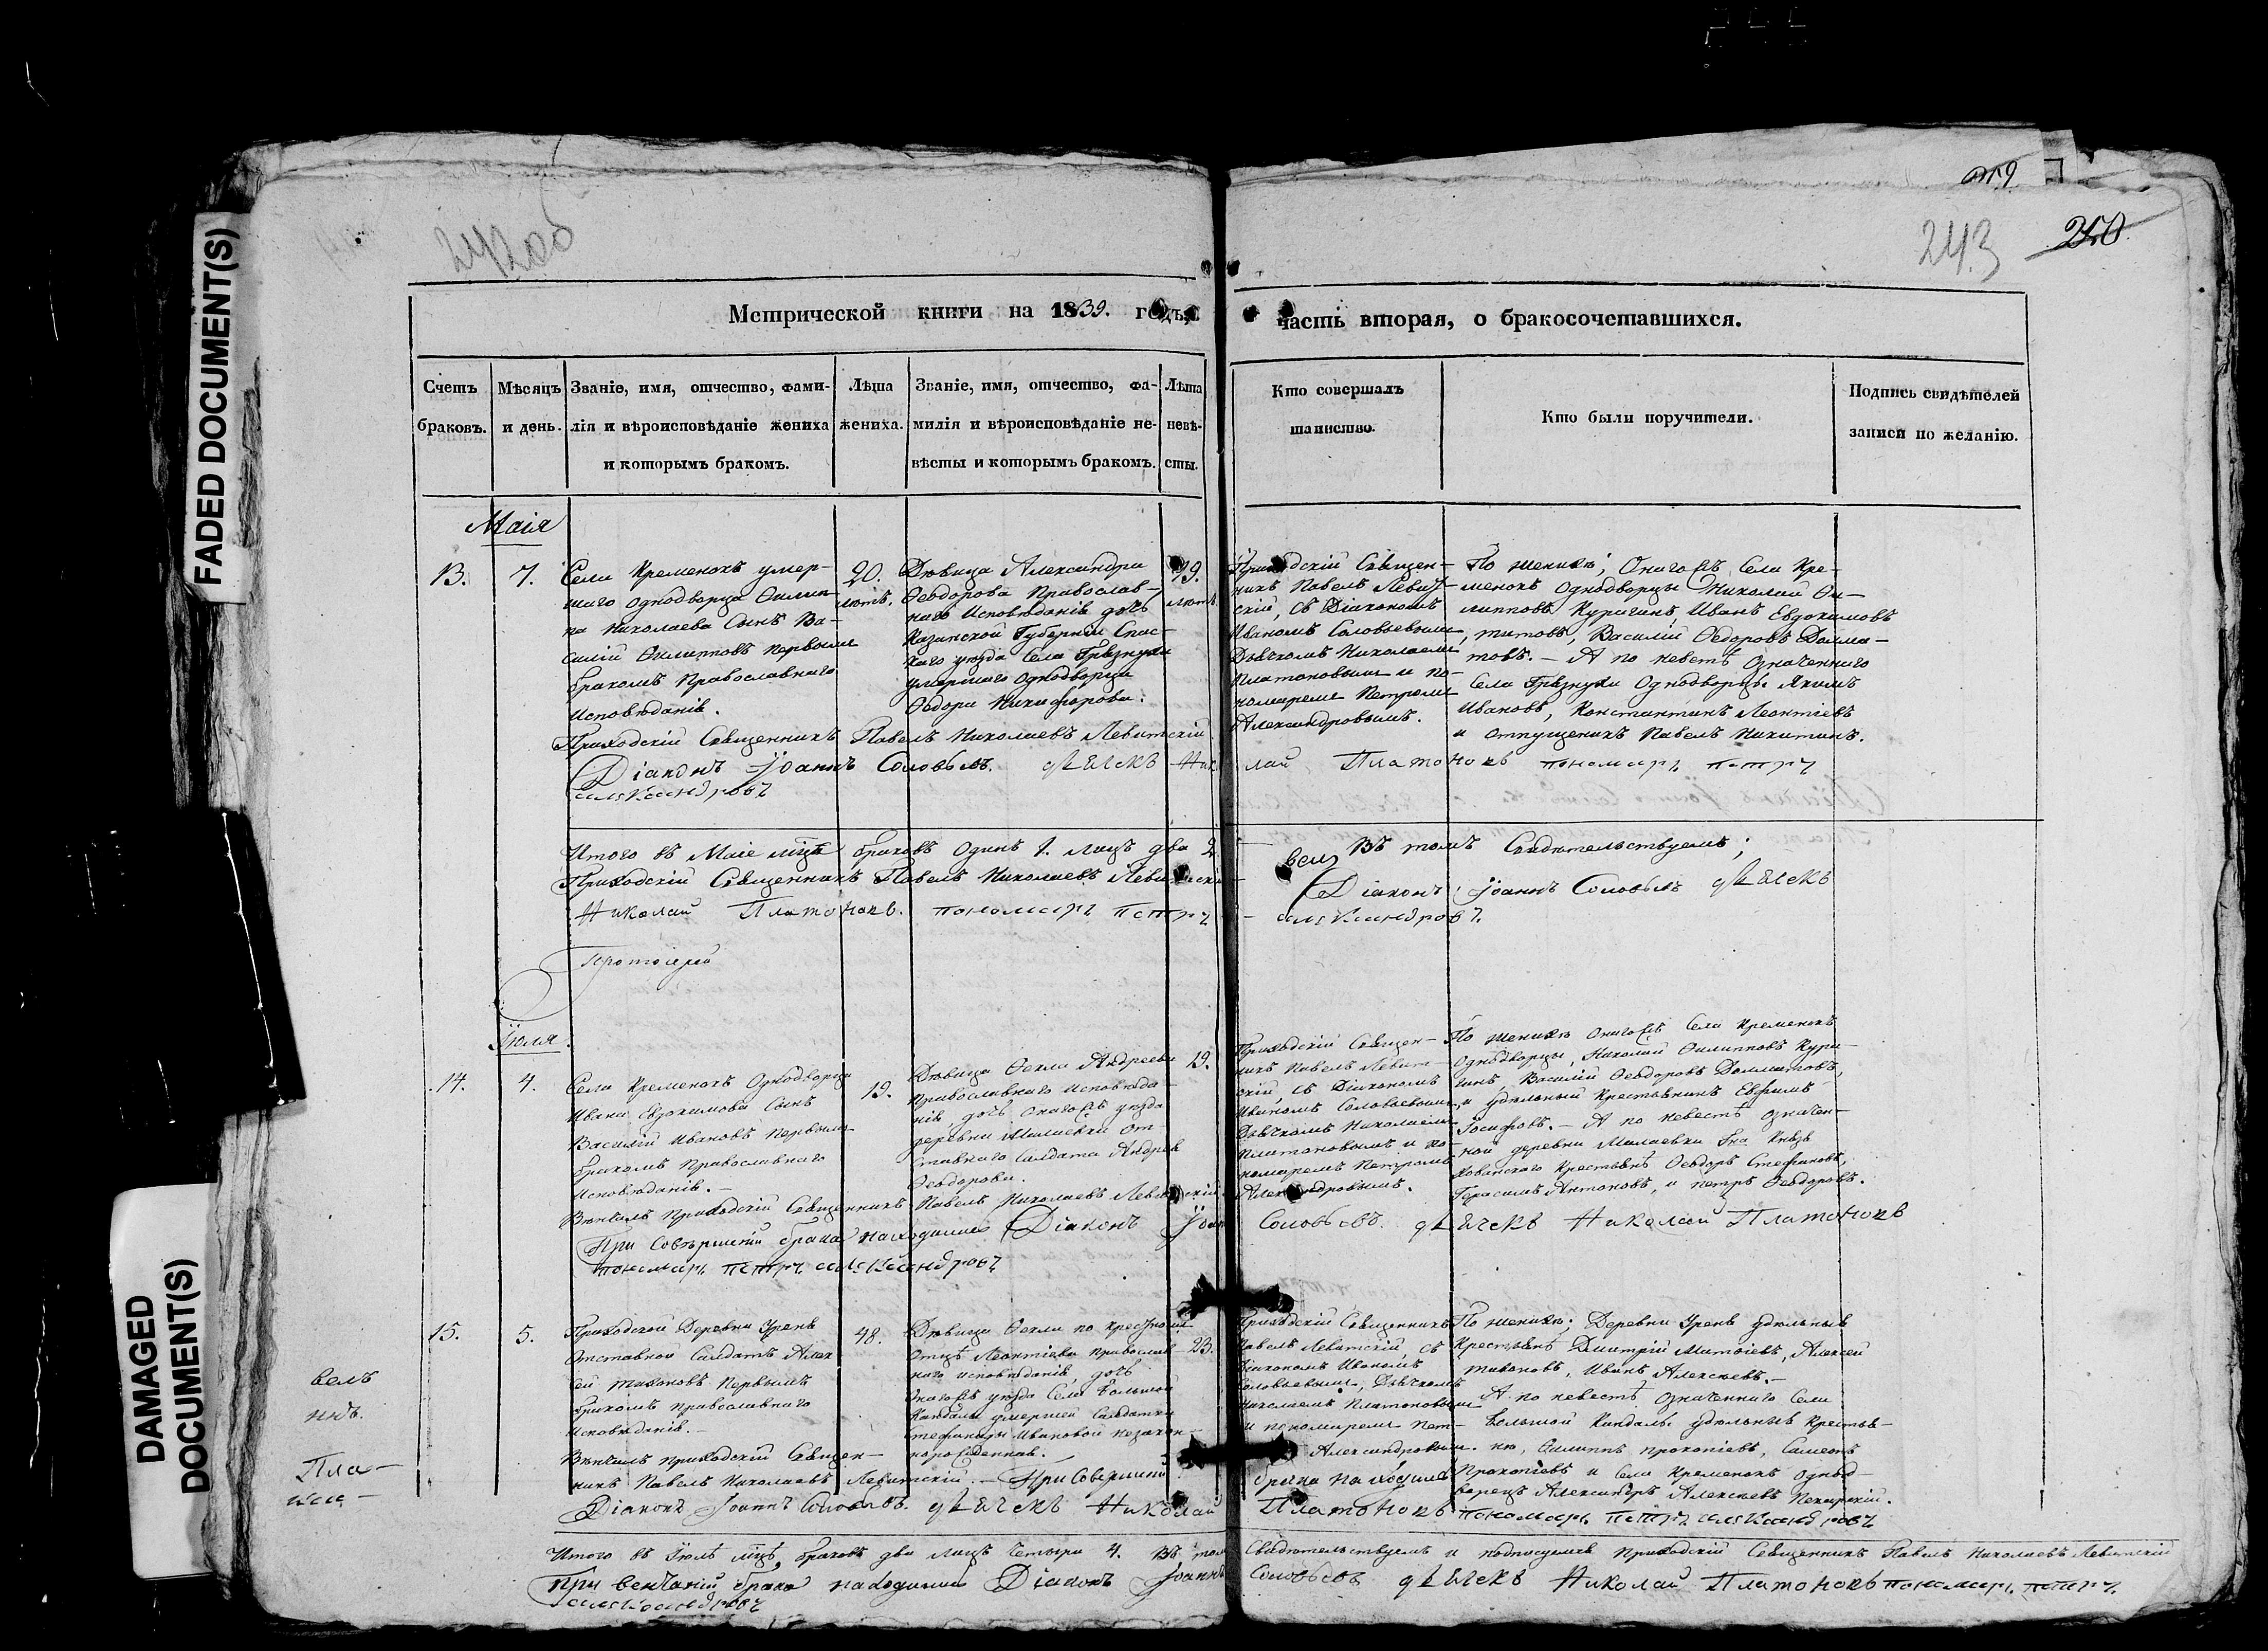 FADED DOCUMENT(S)
DAMAGED
DOCUMENT(S)
242 об
243
250
Метрической книги на 1839. годъ,
часть вторая, о бракосочетавшихся.
Счетъ
браковъ.
Мѣсяцъ
и день.
Званіе, имя, отчество, фами-
лія и вѣроисповѣданіе жениха
и которымъ бракомъ.
Лѣта
жениха.
Званіе, имя, отчество, фа-
милія и вѣроисповѣданіе не-
вѣсты и которымъ бракомъ.
Лѣта
невѣ-
сты.
Кто совершалъ
таинство.
Кто были поручители.
Подпись свидѣтелей
записи по желанію.
Маія
13.
7.
Села Кременокъ умер-
шаго однодворца Филип-
па Николаева Сынъ Ва-
силій Филипповъ первымъ
бракомъ Православнаго
Исповѣданія.
20.
лѣтъ.
Дѣвица Александра
Ѳеодорова Православ-
наго Исповѣданія дочь
Казанской Губерніи Спас-
каго уѣзда Села Грязнухи
умершаго однодворца
Ѳедора Никифорова.
19.
лѣтъ.
Приходскій Священ-
никъ Павелъ Левит-
скій, съ Діакономъ
Иваномъ Соловьевымъ
Дьячкомъ Николаемъ
Платоновымъ и по-
номаремъ Петромъ
Александровымъ.
По женихѣ; Онагожъ Села Кре-
менокъ однодворцы Николай Фи-
липповъ Куригинъ, Иванъ Евдокимовъ
титовъ, Василій Ѳедоровъ Долма-
товъ. – А по невестѣ означеннаго
Села Грязнухи Однодворцы Якимъ
Ивановъ, Константинъ Леонтіевъ
и отпущеникъ Павелъ Никитинъ.
Приходскій Священникъ Павелъ Николаевъ Левитскій
Діаконъ Іоаннъ Соловьевъ. дьячекъ Николай Платоновъ пономарь петръ
александровъ
Итого въ Маіе мцѣ браковъ одинъ 1. лицъ два 2. Въ томъ Свидѣтельствуемъ;
Приходскій Священникъ Павелъ Николаевъ Левитскій Діаконъ Іоаннъ Соловьевъ дьячекъ
Николай Платоновъ. пономарь петръ александровъ.
Протоіерей
Іюля
14.
4.
Села Кременокъ Однодворца
Ивана Евдокимова Сынъ
Василій Ивановъ первымъ
бракомъ Православнаго
Исповѣданія. –
19.
Дѣвица Ѳекла Андреева
Православнаго исповѣда-
нія, дочь онагожъ уѣзда
деревни Милаевки от-
ставнаго Салдата Андрея
Ѳеодорова.
19.
Приходскій Священ-
никъ Павелъ Левит-
скій, съ Діакономъ
Иваномъ Соловьевымъ,
Дьячкомъ Николаемъ
Платоновымъ и по-
номаремъ Петромъ
Александровымъ.
По женихѣ онагожъ Села Кременокъ
Однодворцы, Николай Филипповъ Кури-
гинъ, Василій Ѳеодоровъ Долматовъ,
и удѣльный крестьянинъ Евфимъ
Іосифовъ. – А по невестѣ означен-
ной деревни Милаевки Гна Князя
Хованскаго Крестьянѣ Ѳеодоръ Стефановъ,
Герасимъ Антоновъ, и петръ Ѳеодоровъ.
Вѣнчалъ приходскій Священникъ Павелъ Николаевъ Левитскій.
При Совершеніи брака находились Діаконъ Іоаннъ Соловьевъ. дьячекъ Николай Платоновъ
пономарь петръ александровъ
15.
5.
Приходской Деревни Урень
отставной Салдатъ Алек
сей тихановъ первымъ
бракомъ православнаго
исповѣданія. –
48.
Дѣвица Ѳекла по крестному
отцѣ Леонтіева православ
наго исповѣданія, дочь
онагожъ уѣзда Села большой
Кандалы умершей Салдатки
стефаниды Ивановой незакон-
норожденная.
23.
Приходскій Священникъ
Павелъ Левитскій, съ
Діакономъ Иваномъ
Соловьевымъ, Дьячкомъ
Николаемъ Платоновымъ
и пономаремъ пет-
Александровымъ.
По женихѣ; Деревни Урень удѣльныя
Крестьянѣ Дмитрій Матвіевъ, Алексей
тихановъ, Иванъ Алексѣевъ. –
А по невестѣ означеннаго Села
большой Кандалы удѣльныя Крестья-
не, Филиппъ прокопіевъ, Самсонъ
Прокопіевъ и Села Кременокъ однод-
ворецъ Александръ Алексѣевъ Пекарскій.
Вѣнчалъ приходскій Священ-
никъ Павелъ Николаевъ Левитскій. – При Совершеніи брака находились
Діаконъ Іоаннъ Соловьевъ. дьячекъ Николай Платоновъ пономарь петръ александровъ
Итого въ Іюлѣ мцѣ, браковъ два лицъ четыри 4. Въ томъ Свидѣтельствуемъ и подписуемся приходскій Священникъ Павелъ Николаевъ Левитскій
При венчаніи брака находились Діаконъ Іоаннъ Соловьевъ дьячекъ Николай Платоновъ пономарь петръ
александровъ
велъ
Пла-